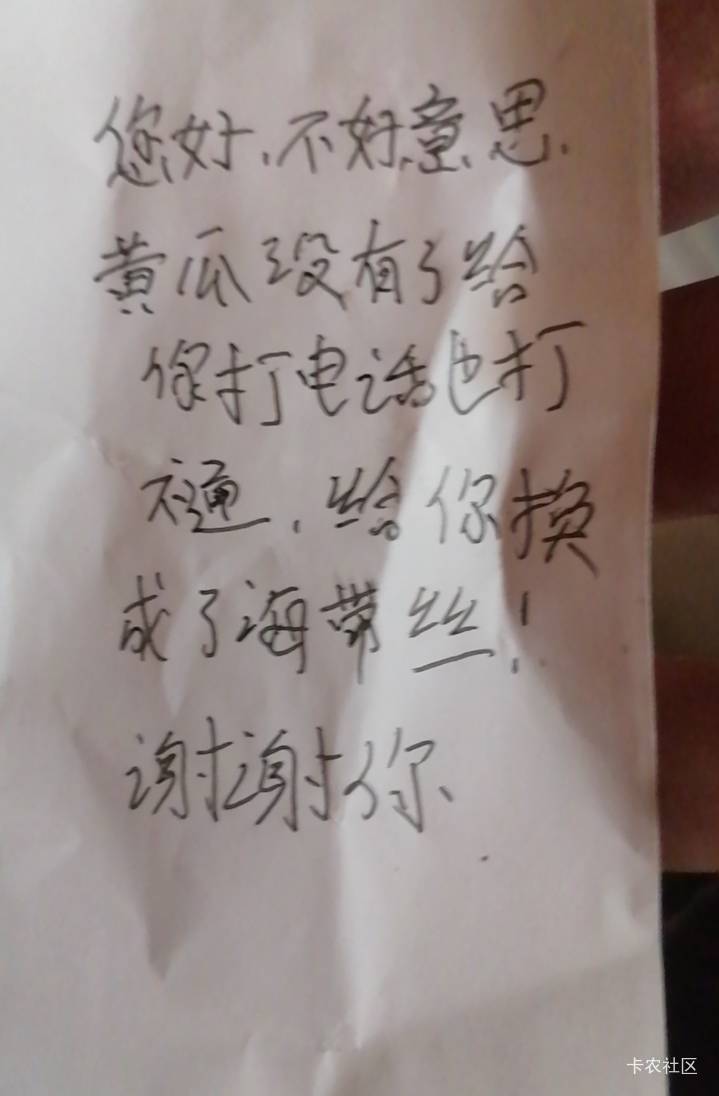 您好、不好意思.
黄瓜没有了给
你打电话也打
不通、给你换
成了海带丝！
谢谢你、
卡农社区